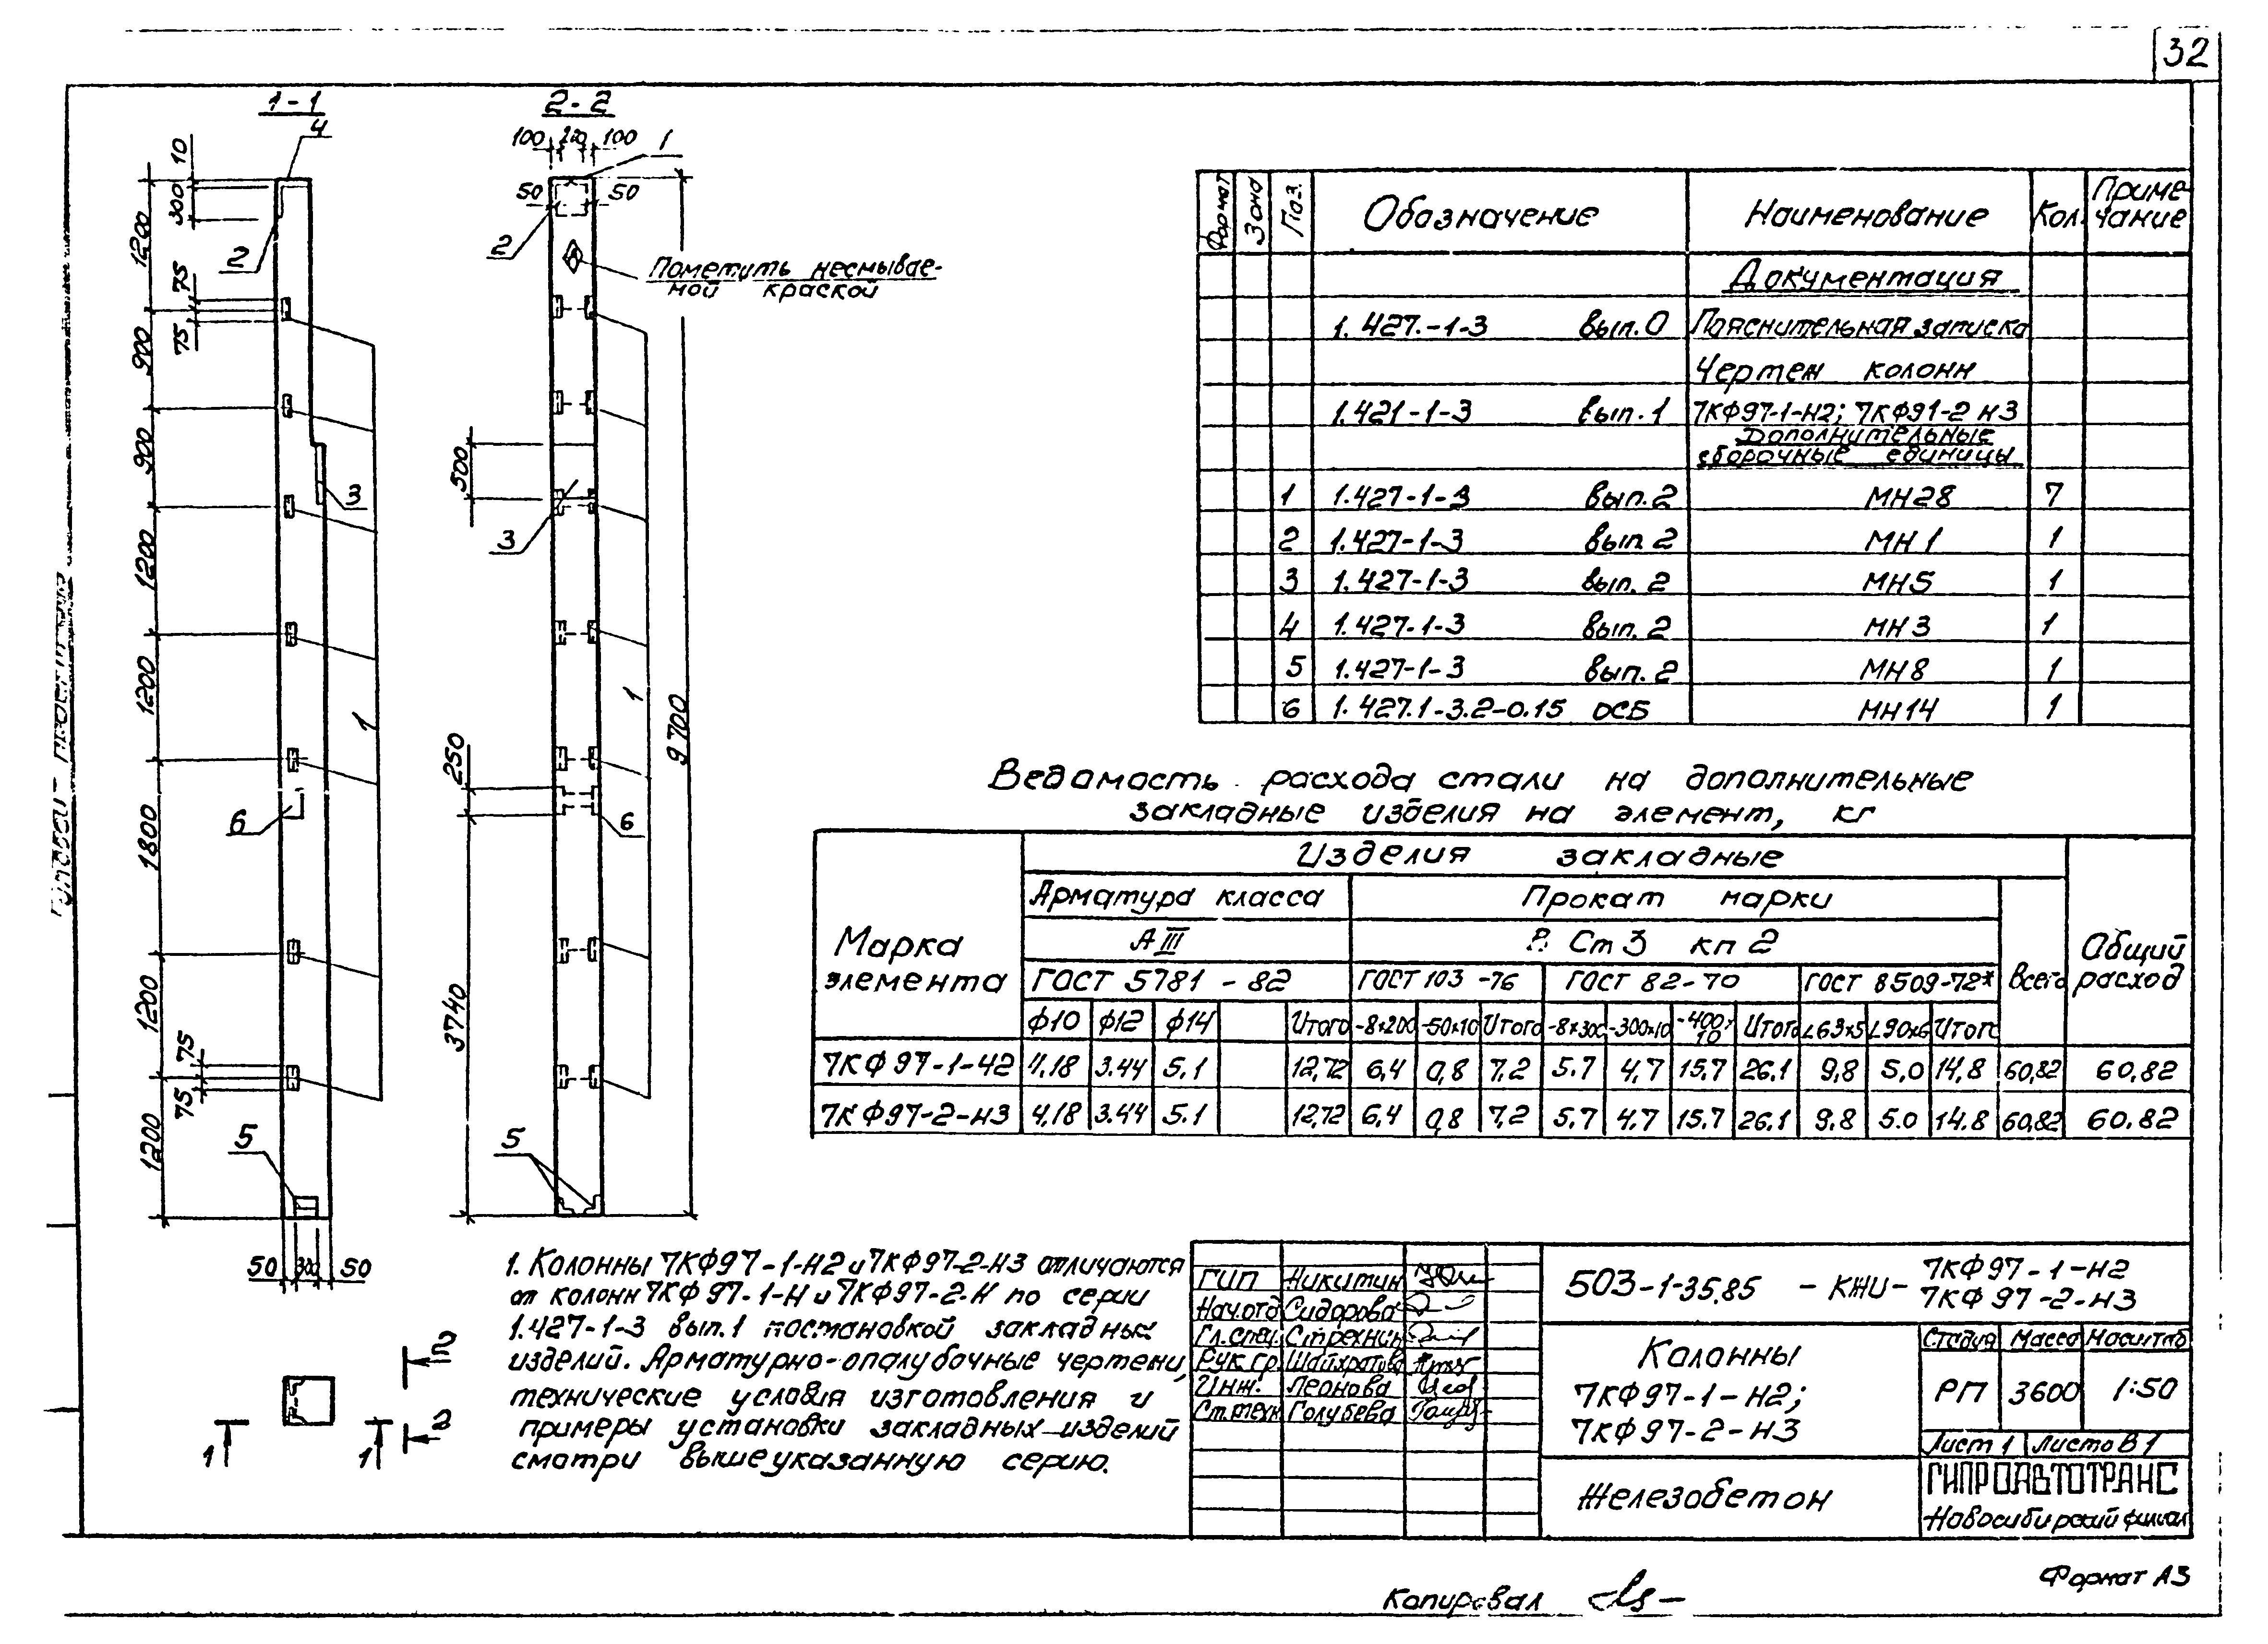 32
1-1
4
10
300
1200
2
75
75
900
900
3
1200
1200
1
6
1800
1200
75
75
5
1200
50
300
50
2-2
100
100
1
50
50
2
Пометить несмывае-
мой краской
500
3
1
9700
250
6
3740
5
2
2
1
1
Формат
Зона
Поз.
Обозначение
Наименование
Кол.
Приме-
чание
Документация
1.427.-1-3 вып.0 Пояснительная записка
Чертеж колонн
1.421-1-3 вып.1 7КФ97-1-Н2; 7КФ91-2 Н3
Дополнительные
сборочные единицы
1 1.427-1-3 вып.2 МН28 7
2 1.427-1-3 вып 2 МН1 1
3 1.427-1-3 вып.2 МН5 1
4 1.427-1-3 вып.2 МН3 1
5 1.427-1-3 вып.2 МН8 1
6 1.427.1-3.2-0.15 ОСБ МН14 1
Ведомость расхода стали на дополнительные
закладные изделия на элемент, кг
Марка
элемента
Изделия закладные
Арматура класса
Прокат марки
АIII
В Ст3 кп2
Всего
Общий
расход
ГОСТ 5781-82
ГОСТ 103-76
ГОСТ 82-70
ГОСТ 8509-72*
ф10 ф12 ф14 Итого -8×200 -50×10 Итого -8×300 -300×10 -400×10 Итого L63×5 L90×6 Итого
7КФ97-1-Н2 4,18 3.44 5.1 12,72 6,4 0,8 7,2 5.7 4,7 15,7 26.1 9,8 5,0 14,8 60,82 60,82
7КФ97-2-Н3 4,18 3.44 5.1 12,72 6,4 0,8 7,2 5,7 4,7 15,7 26.1 9.8 5.0 14.8 60,82 60.82
1. Колонны 7КФ97-1-Н2 и 7КФ97-2-Н3 отличаются
от колонн 7КФ97-1-Н и 7КФ97-2-Н по серии
1.427-1-3 вып.1 постановкой закладных
изделий. Арматурно-опалубочные чертежи,
технические условия изготовления и
примеры установки закладных изделий
смотри вышеуказанную серию.
ГИП Никитин
Нач.отд Сидорова
Гл.спец. Стрехнин
Рук.гр. Шайхратова
Инж. Леонова
Ст.техн Голубева
503-1-35.85 - КЖИ- 7КФ97-1-Н2
7КФ97-2-Н3
Колонны
7КФ97-1-Н2;
7КФ97-2-Н3
Стадия Масса Масштаб
РП 3600 1:50
Лист 1 Листов 1
Железобетон
ГИПРОАВТОТРАНС
Новосибирский филиал
Копировал
Формат А3